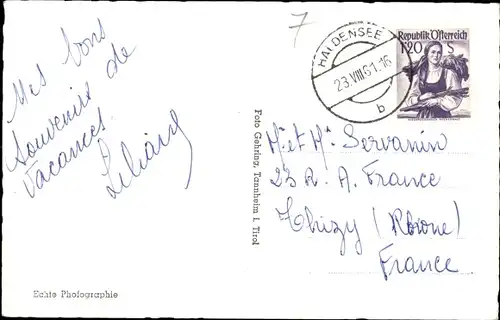 7
Mes bons
souvenirs de
vacances.
Liliane
Echte Photographie
Foto Gehring, Tannheim i. Tirol
HALDENSEE
23.VIII.61.16
b
Republik Österreich
1.20 S
M. et Me Servanin
23 R. A. France
Thizy (Rhône)
France